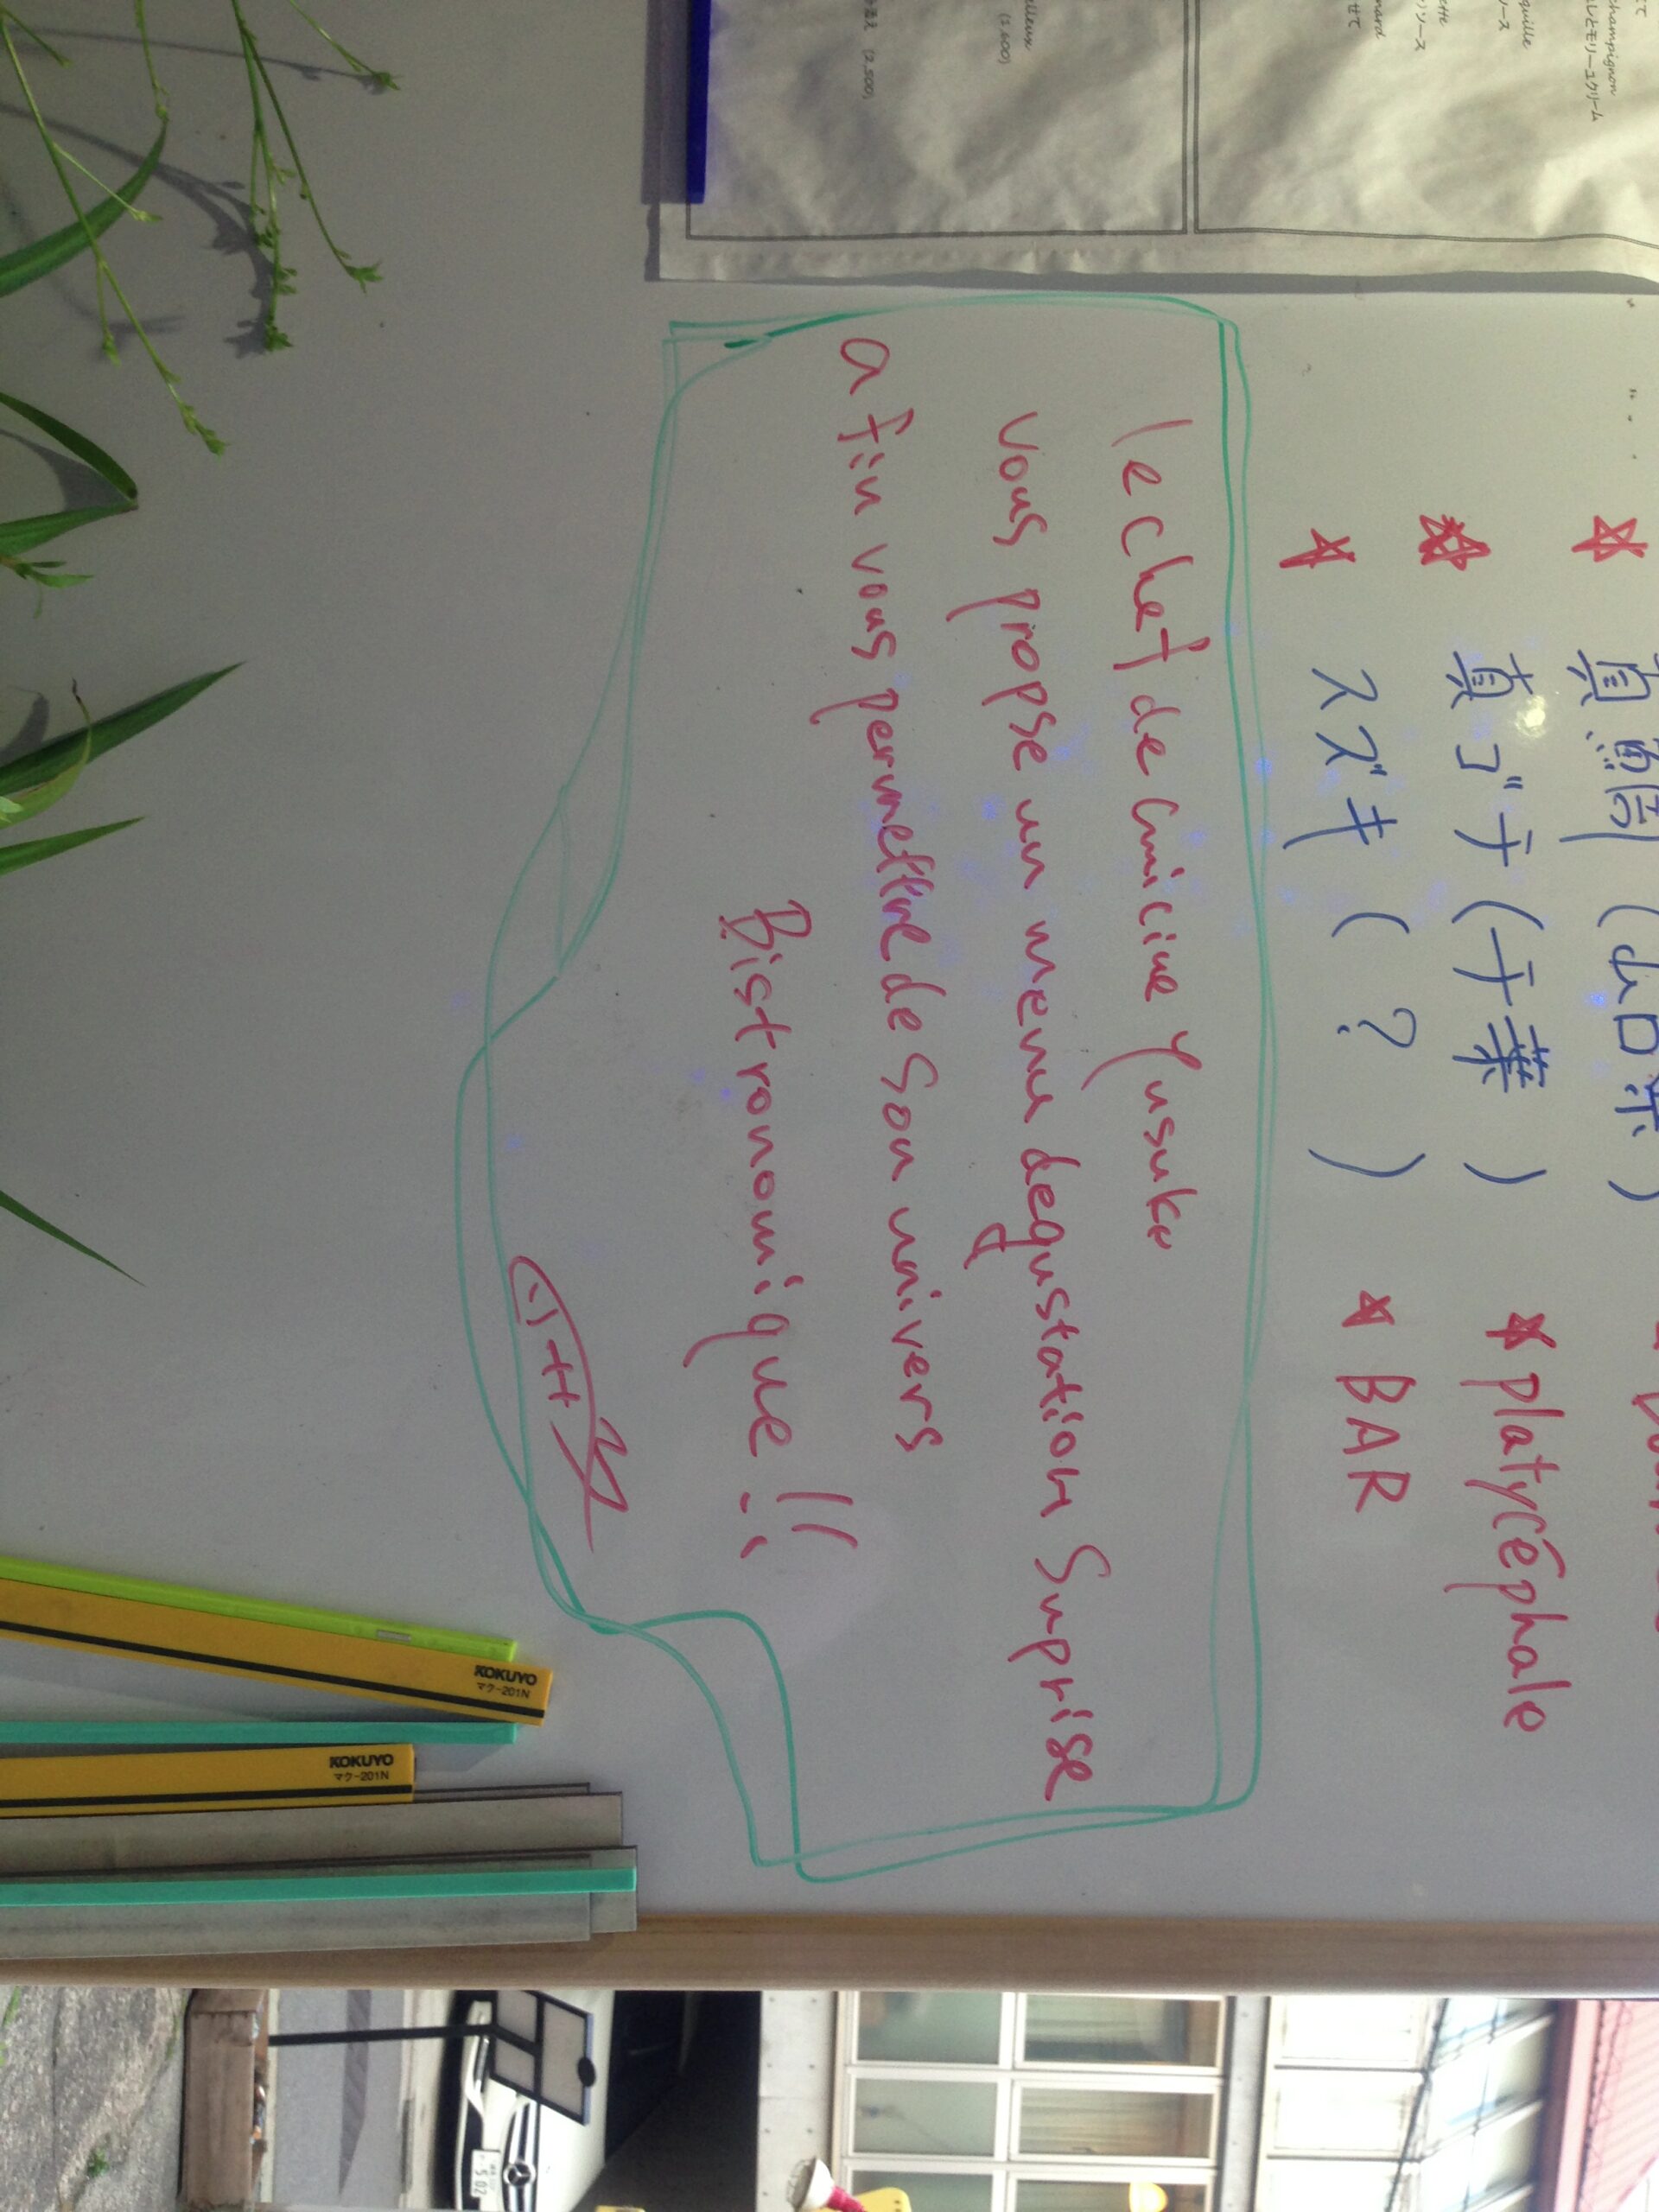 champignon
モリーユクリーム
ソース
(1,600)
(2,500)
真鯛 (山口県)
真ゴチ (千葉) platycéphale
スズキ (?) BAR
le chef de Cuicine Yusuke
vous propse un menu degustation Suprise
afin vous permettre de Son univers
Bistronomique !!
KOKUYO
マク-201N
KOKUYO
マク-201N